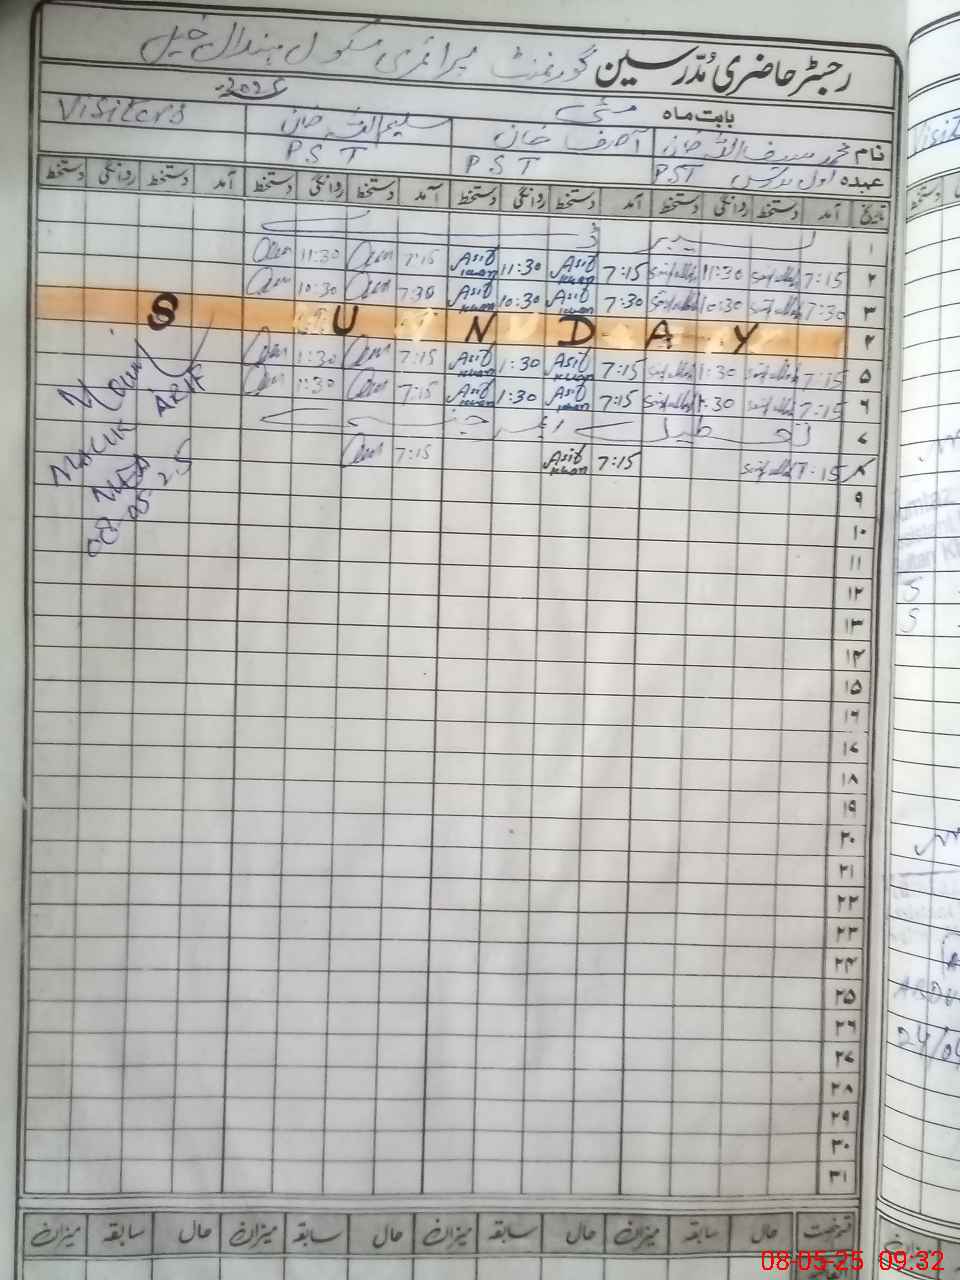 رجسٹر حاضری مُدّرسین گورنمنٹ پرائمری سکول ہندال خیل
بابت ماہ مئی 2025
نام محمد سیف اللہ خان آصف خان سلیم اللہ خان Visiters
عہدہ اول مدرس PST P.S.T P.S.T
تاریخ آمد دستخط روانگی دستخط آمد دستخط روانگی دستخط آمد دستخط روانگی دستخط آمد دستخط روانگی دستخط
۱ لیبر ڈے
۲ 7:15 Saifullah 11:30 Saifullah 7:15 Asif Khan 11:30 Asif Khan 7:15 11:30
۳ 7:30 Saifullah 10:30 Saifullah 7:30 Asif Khan 10:30 Asif Khan 7:30 10:30
۴ SUNDAY
۵ 7:15 Saifullah 1:30 Saifullah 7:15 Asif Khan 1:30 Asif Khan 7:15 1:30
۶ 7:15 Saifullah 1:30 Saifullah 7:15 Asif Khan 1:30 Asif Khan 7:15 1:30
۷ تعطیل ایمرجنسی
۸ 7:15 Saifullah 7:15 Asif Khan 7:15
MALIK ARIF
08-05-25
۹
۱۰
۱۱
۱۲
۱۳
۱۴
۱۵
۱۶
۱۷
۱۸
۱۹
۲۰
۲۱
۲۲
۲۳
۲۴
۲۵
۲۶
۲۷
۲۸
۲۹
۳۰
۳۱
حال سابقہ میزان حال سابقہ میزان حال سابقہ میزان حال سابقہ میزان
24/04
08-05-25 09:32